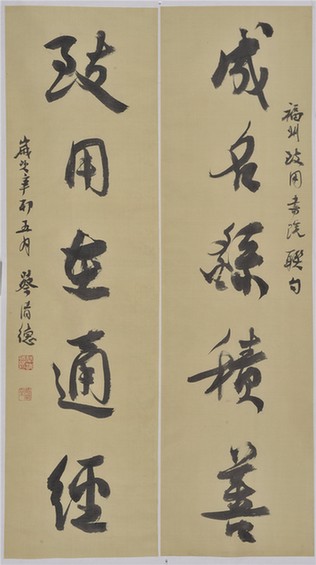 福州致用書院聯句
成名繇積善
致用在通經
歲次辛卯五月 蔡清德